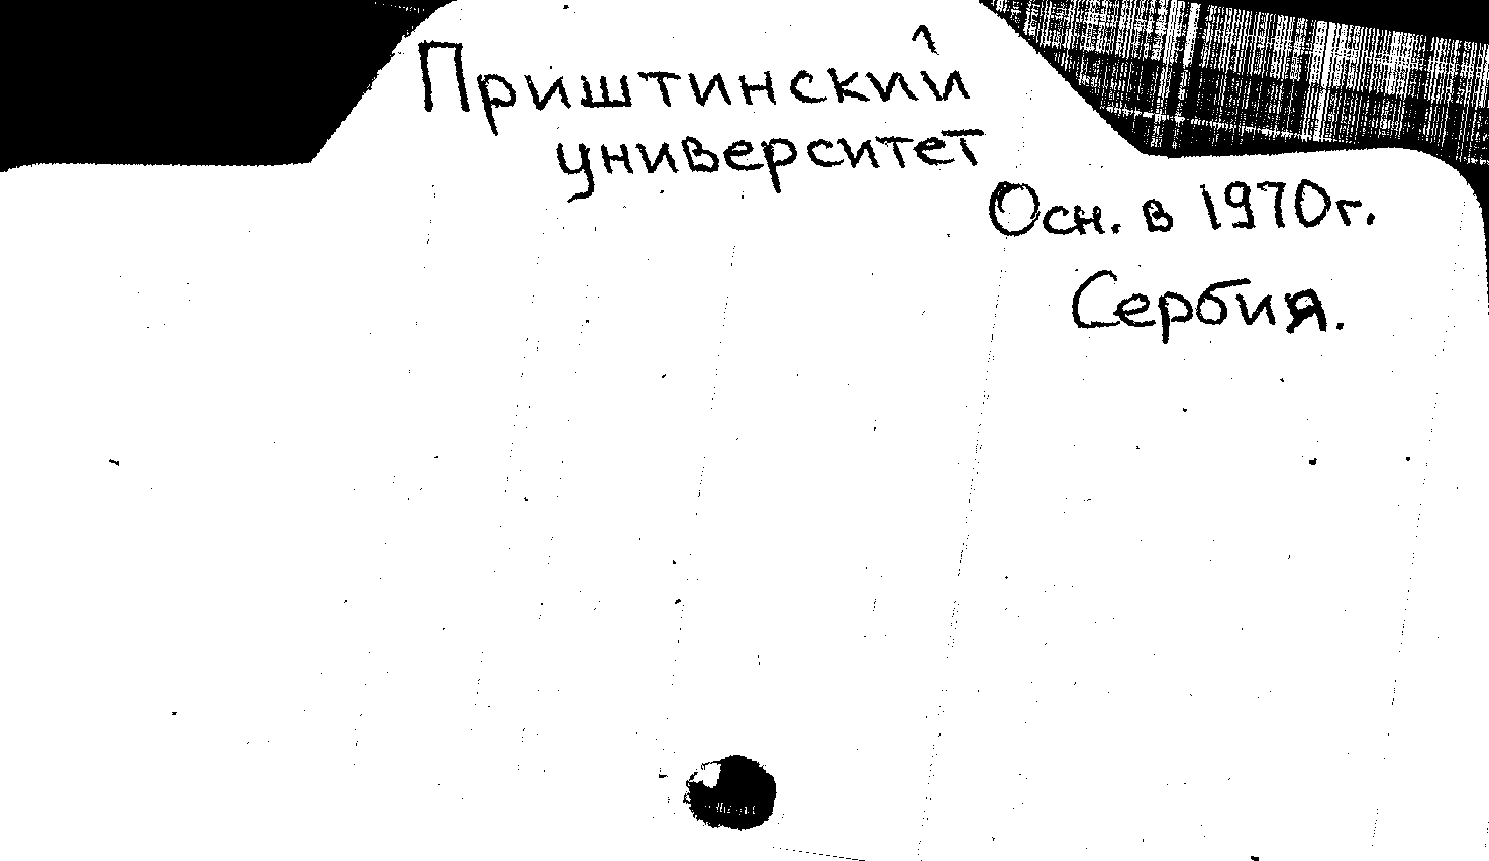 Приштинский
университет
Осн. в 1970г.
Сербия.